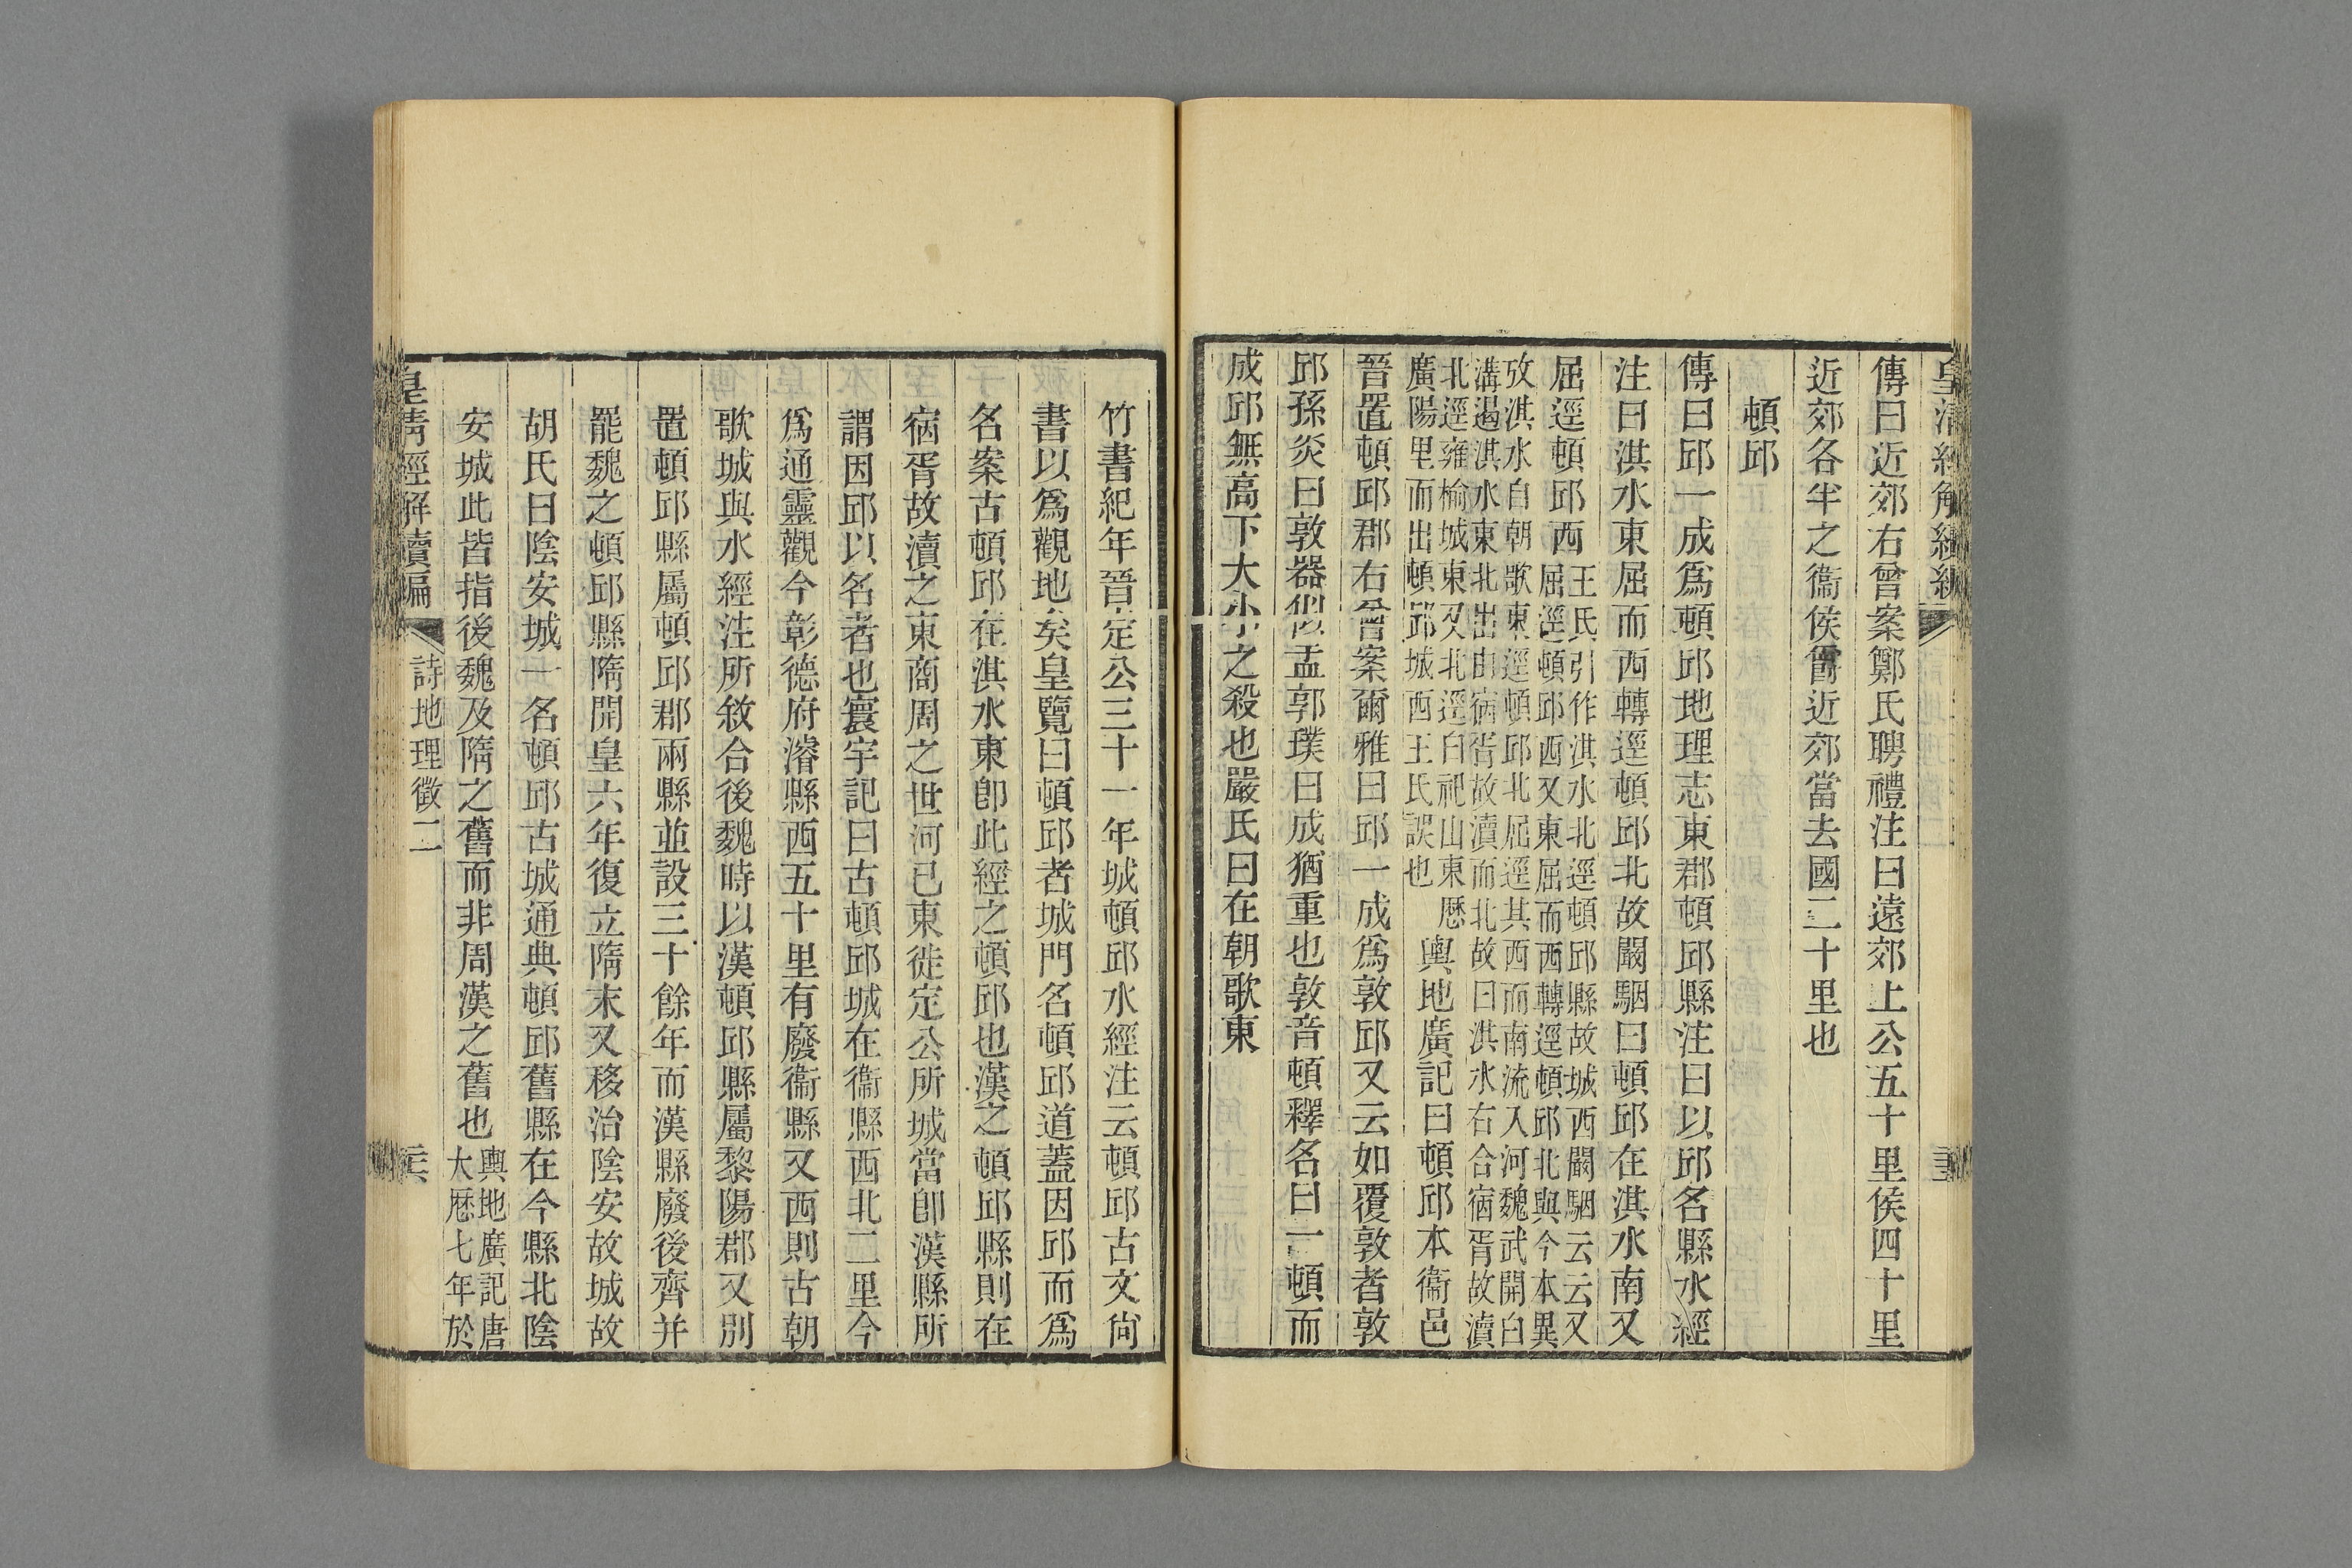 傳曰近郊右曾案鄭氏聘禮注曰遠郊上公五十里侯四十里
近郊各半之衞侯爵近郊當去國二十里也
頓邱
傳曰邱一成爲頓邱地理志東郡頓邱縣注曰以邱名縣水經
注曰淇水東屈而西轉逕頓邱北故闞駰曰頓邱在淇水南又
屈逕頓邱西
王氏引作淇水北逕頓邱縣故城西闞駰云云又
屈逕頓邱西又東屈而西轉逕頓邱北與今本異
攷淇水自朝歌東逕頓邱北屈逕其西而南流入河魏武開白
溝遏淇水東北出由宿胥故瀆而北故曰淇水右合宿胥故瀆
北逕雍榆城東又北逕白祀山東歷
廣陽里而出頓邱城西王氏誤也
輿地廣記曰頓邱本衞邑
晉置頓邱郡右曾案爾雅曰邱一成爲敦邱又云如覆敦者敦
邱孫炎曰敦器似盂郭璞曰成猶重也敦音頓釋名曰一頓而
成邱無高下大小之殺也嚴氏曰在朝歌東
竹書紀年晉定公三十一年城頓邱水經注云頓邱古文尙
書以爲觀地矣皇覽曰頓邱者城門名頓邱道蓋因邱而爲
名案古頓邱在淇水東卽此經之頓邱也漢之頓邱縣則在
宿胥故瀆之東商周之世河已東徙定公所城當卽漢縣所
謂因邱以名者也寰宇記曰古頓邱城在衞縣西北二里今
爲通靈觀今彰德府濬縣西五十里有廢衞縣又西則古朝
歌城與水經注所敘合後魏時以漢頓邱縣屬黎陽郡又別
置頓邱縣屬頓邱郡兩縣並設三十餘年而漢縣廢後齊并
罷魏之頓邱縣隋開皇六年復立隋末又移治陰安故城故
胡氏曰陰安城一名頓邱古城通典頓邱舊縣在今縣北陰
安城此皆指後魏及隋之舊而非周漢之舊也
輿地廣記唐
大歷七年於
皇清經解續編
詩地理徵二